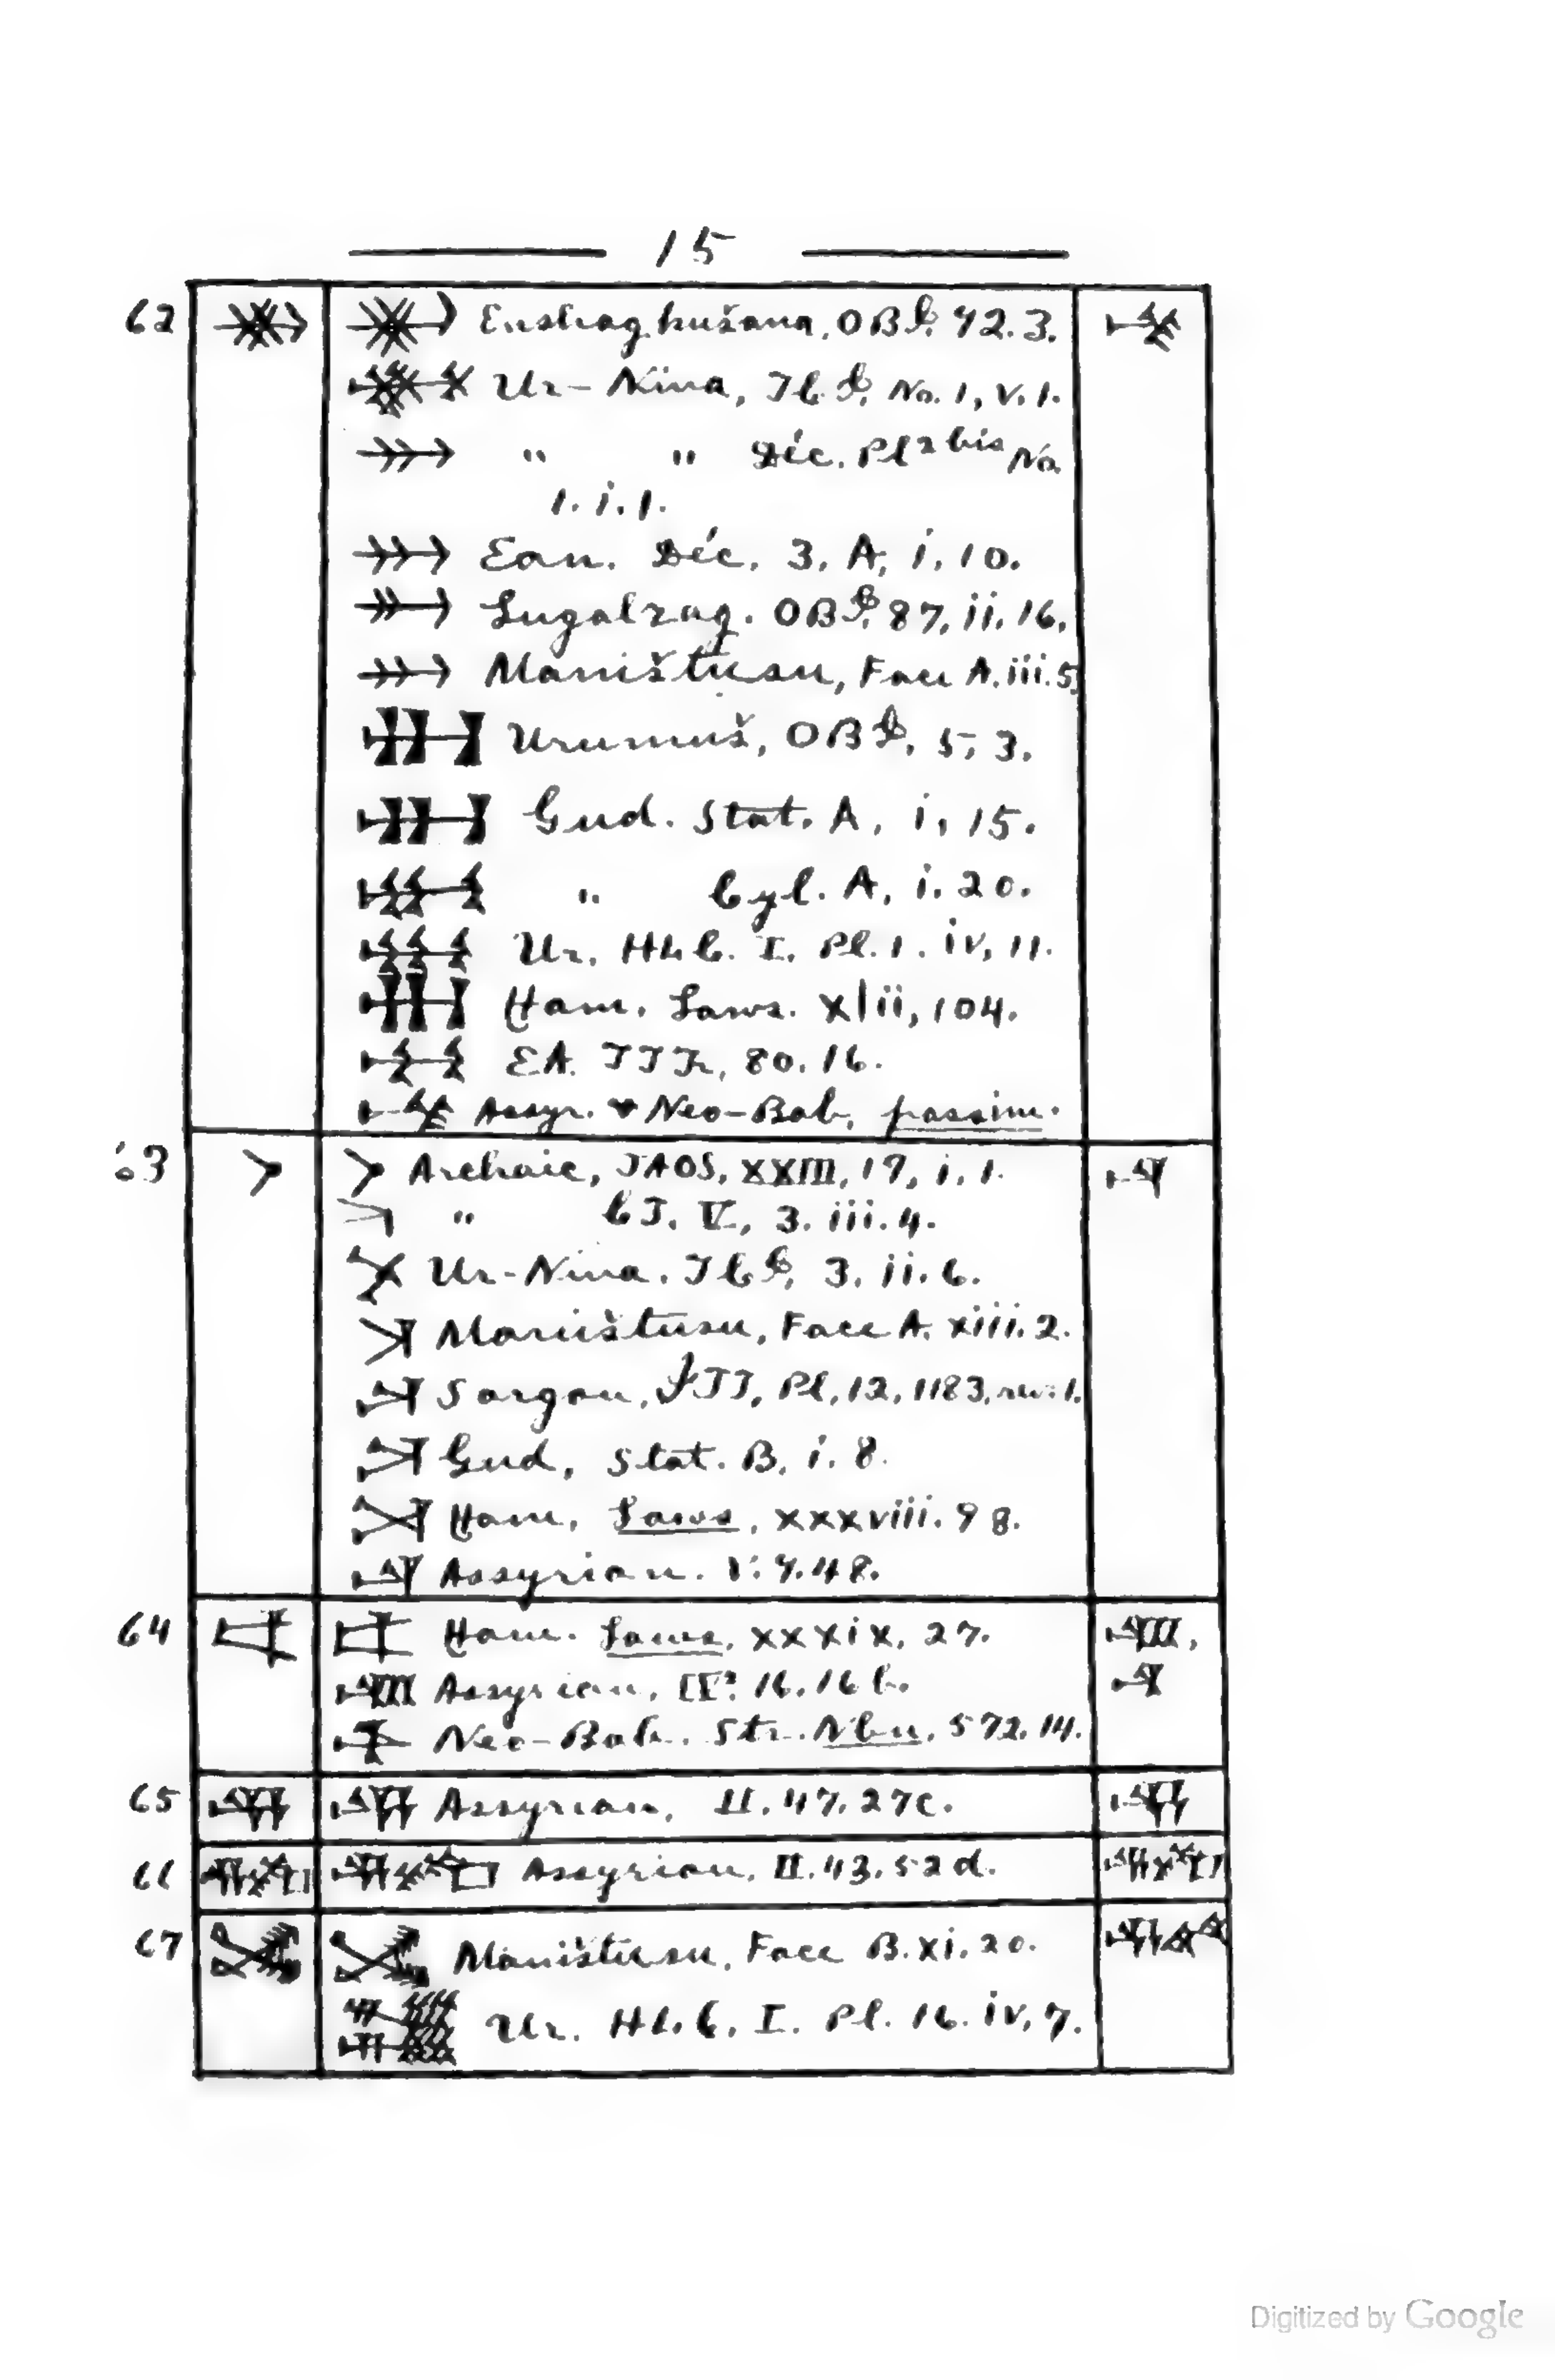 15
62 Enshagkušana, OBI, 92. 3.
Ur-Nina, No. 1, v. 1.
" " Déc. Pl 2 bis No.
1. i. 1.
Ean. Déc. 3. A, i, 10.
Lugalzag. OBI, 87, ii. 16,
Maništusu, Face A. iii. 5,
Urumuš, OBI, 5, 3.
Gud. Stat. A, i, 15.
" Cyl. A, i. 20.
Ur. HLC. I. Pl. 1. iv, 11.
Ham. Laws. xlii, 104.
EA. 80. 16.
Assyr. & Neo-Bab, passim.
63 Archaic, JAOS, XXIII, 19, i, 1.
" CT. V, 3. iii. 4.
Ur-Nina. 3. ii. 6.
Maništusu, Face A. xiii. 2.
Sargon, Pl, 12, 1183, rev. 1.
Gud, Stat. B, i. 8.
Ham, Laws, xxxviii. 98.
Assyrian. V. 9. 48.
64 Ham. Laws, xxxix, 27.
Assyrian, IV² 16. 16 b.
Neo-Bab. Str. Nbn, 572, 14.
65 Assyrian, II. 47. 27c.
66 Assyrian, II. 43. 52 d.
67 Maništusu, Face B. xi. 20.
Ur. HLC. I. Pl. 16. iv, 7.
Digitized by Google